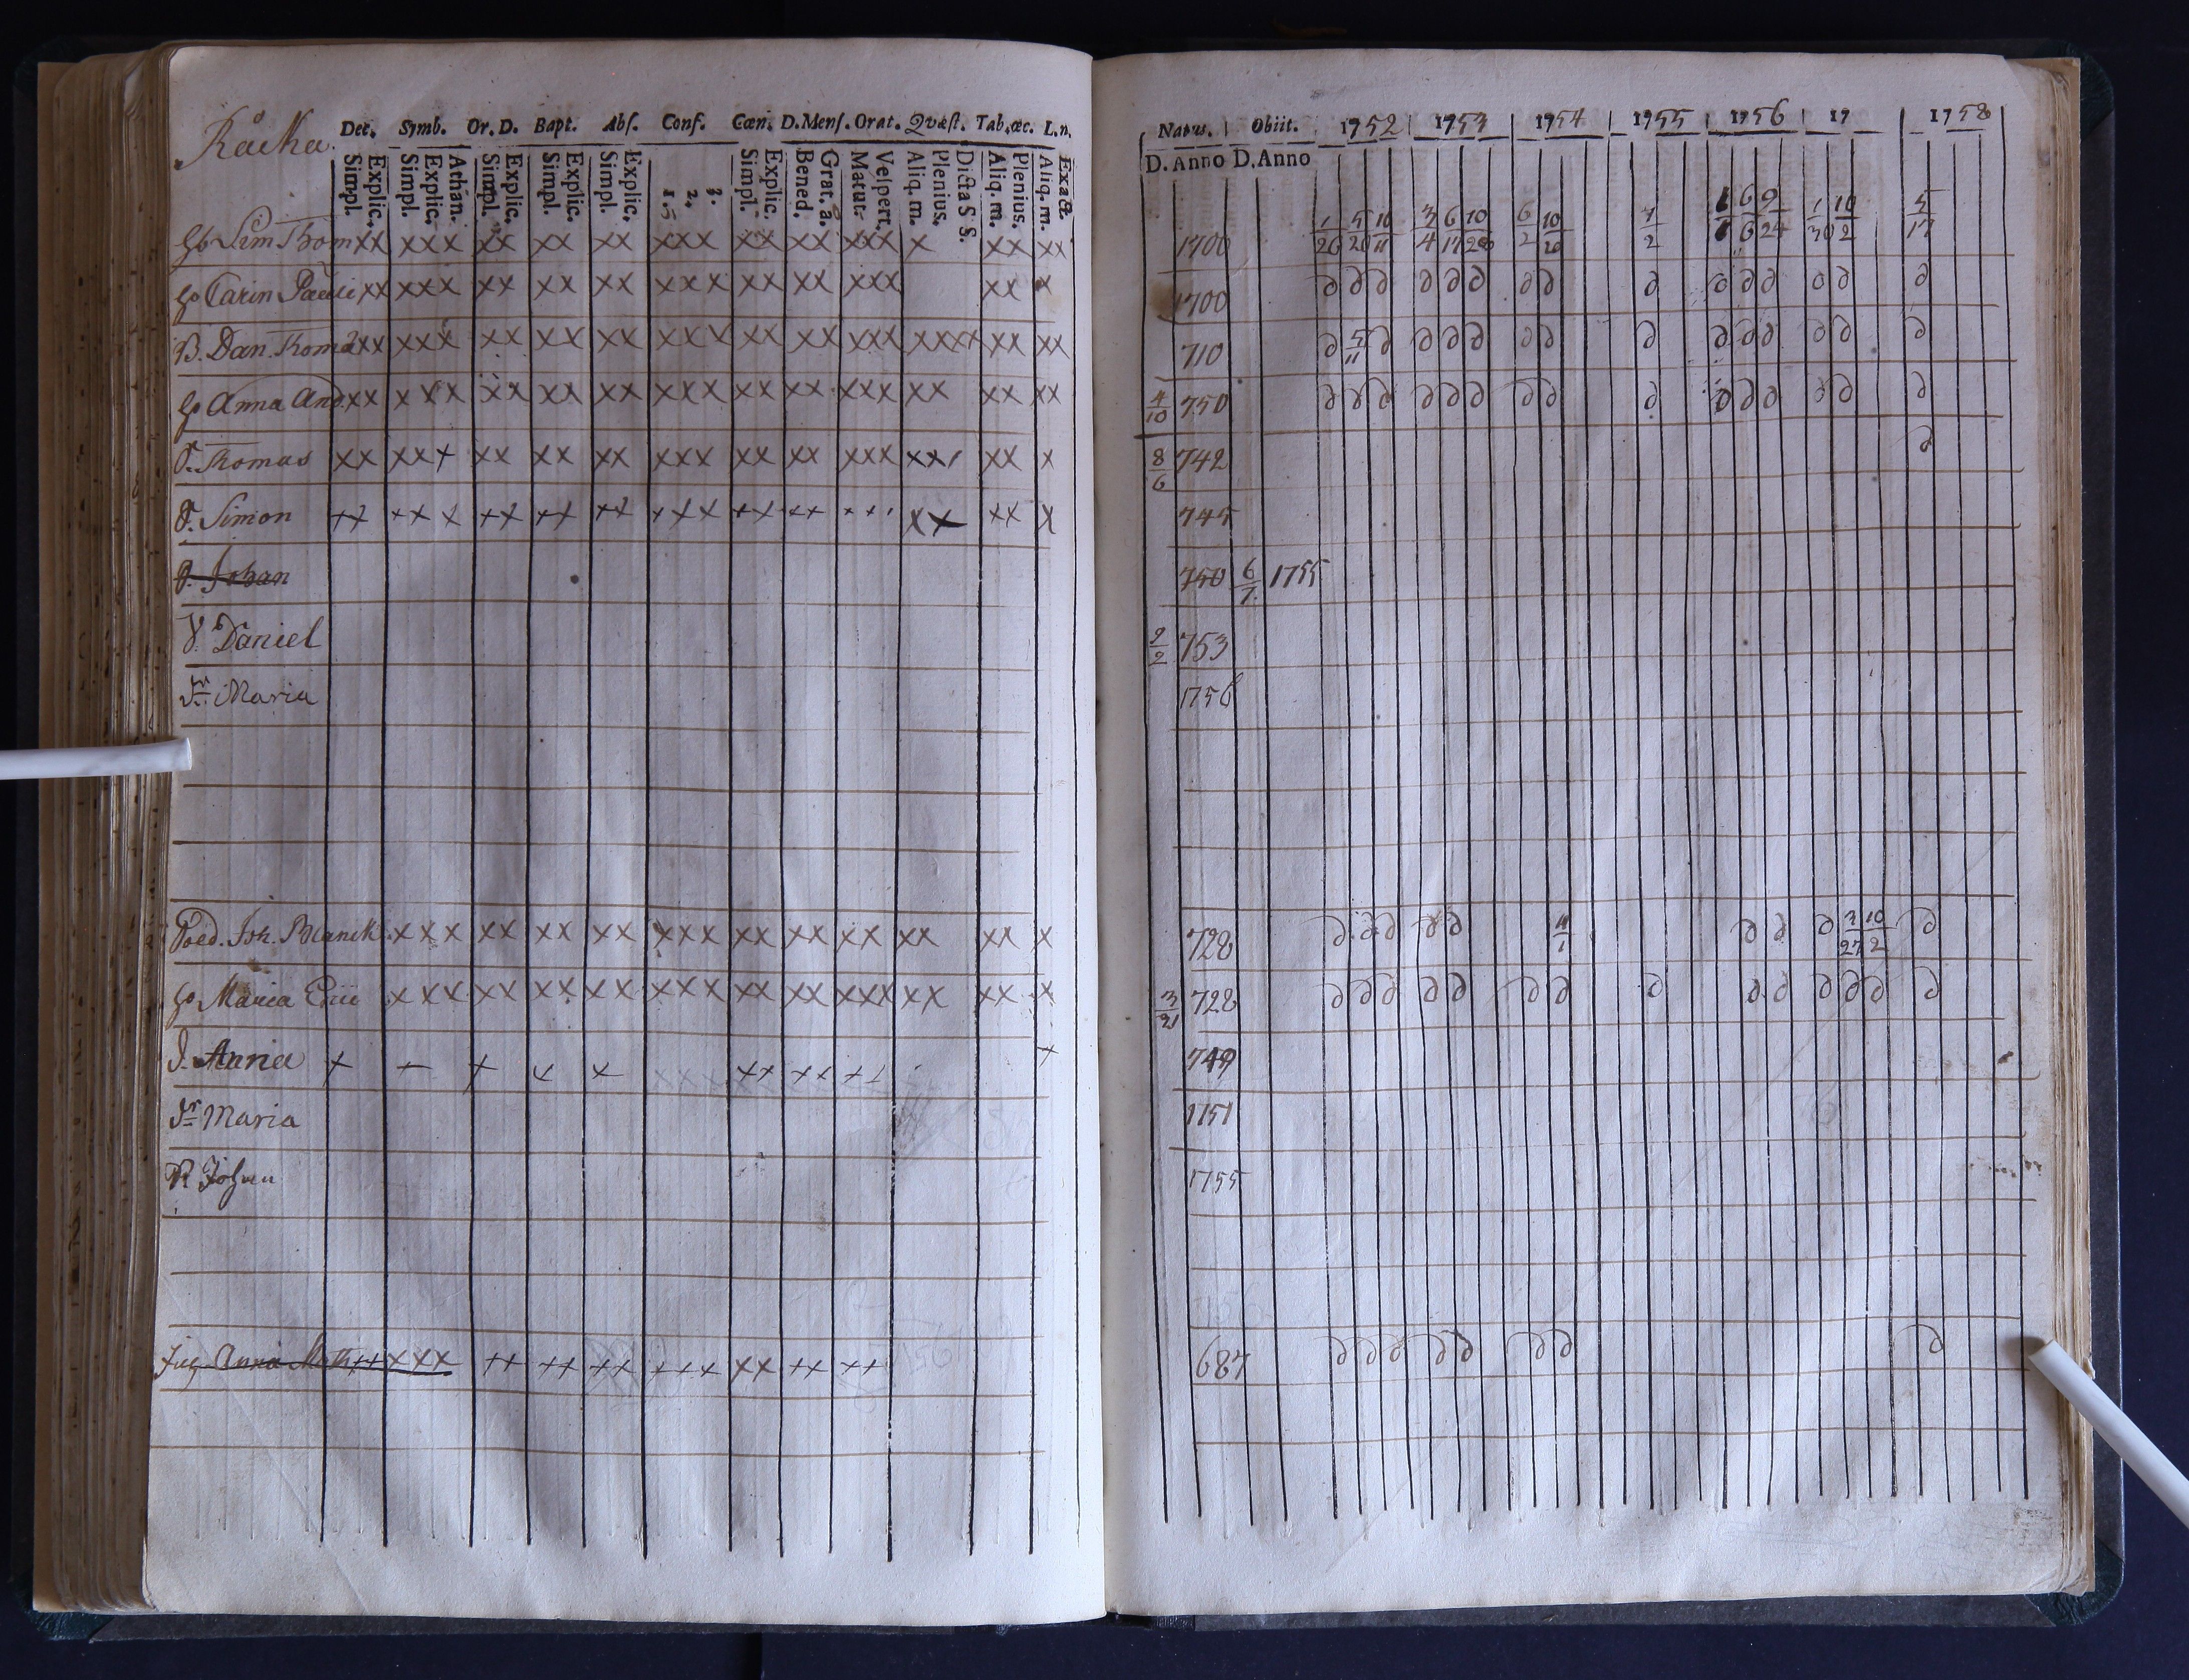 Råcka.
Dec. Symb. Or. D. Bapt. Abs. Conf. Cœn. D. Mens. Orat. Qvæst. Tab. œc. L. n.
Simpl. Explic. Simpl. Explic. Athan. Simpl. Explic. Simpl. Explic. Simpl. Explic. 1. 2. 3. Simpl. Explic. Bened. Grat. a. Matut. Vespert. Aliq. m. Plenius. Dicta S S. Aliq. m. Plenius. Aliq. m. Exact.
Sim Thom xx xxx xx xx xx xxx xx xx xxx x xx xx
Carin xx xxx xx xx xx xxx xx xx xxx xx x
B. Dan. Thom xx xxx xx xx xx xxx xx xx xxx xxxx xx xx
Anna And. xx xxx xx xx xx xxx xx xx xxx xx xx xx
Thomas xx xxx xx xx xx xxx xx xx xxx xx xx x
Simon xx xxx xx xx xx xxx xx xx xx xx x
Johan
Daniel
Maria
Joh. xxx xx xx xx xxx xx xx xx xx xx x
Maria xxx xx xx xx xxx xx xx xxx xx xx x
Anna x x x x xx xx x
Maria
Johan
Anna Math xx xxx xx xx xx xxx xx xx xx
Natus. Obiit. 1752 1753 1754 1755 1756 17 1758
D. Anno D. Anno
1 5 10 3 6 10 6 10 7 1 6 9 1 10 5
1700 26 20 11 4 17 20 2 20 2 6 6 24 30 2 17
1700 ∂∂∂ ∂∂∂ ∂∂ ∂ ∂∂∂ ∂∂ ∂
710 ∂ 5/11 ∂ ∂∂∂ ∂∂ ∂ ∂∂∂ ∂∂ ∂
4/10 750 ∂∂∂ ∂∂∂ ∂∂ ∂ ∂∂∂ ∂∂ ∂
8/6 742 ∂
745
750 6/7 1755
2/2 753
1756
728 ∂∂∂ ∂∂ 11/1 ∂∂ ∂ 3/27 10/2 ∂
3/21 728 ∂∂∂ ∂∂ ∂∂ ∂ ∂∂ ∂∂∂ ∂
749
1751
1755
687 ∂∂∂ ∂∂ ∂∂ ∂